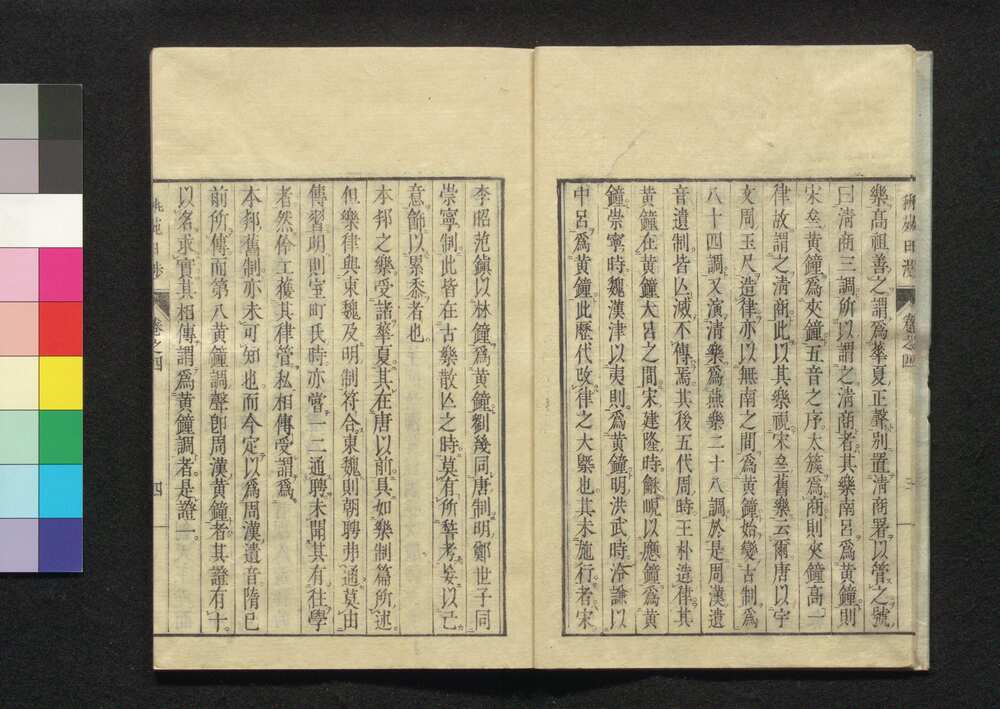 樂高祖善之謂爲華夏正聲別置清商署以管之號
曰清商三調所以謂之清商者其樂南呂爲黃鐘則
宋㐮黃鐘爲夾鐘五音之序太簇爲商則夾鐘高一
律故謂之清商此以其樂視宋㐮舊樂云爾唐以宇
文周玉尺造律亦以無南之間爲黃鐘始變古制爲
八十四調又演清樂爲燕樂二十八調於是周漢遺
音遺制皆以滅不傳焉其後五代周時王朴造律其
黃鐘在黃鐘大呂之間宋建隆時和峴以應鐘爲黃
鐘崇寧時魏漢津以夷則爲黃鐘明洪武時冷謙以
中呂爲黃鐘此歷代改律之大槩也其未施行者宋
卷之四
李昭范鎮以林鐘爲黃鐘劉幾同唐制明鄭世子同
崇寧制此皆在古樂散亾之時莫有所督考妄以己
意飾以累黍者也
本邦之樂受諸華夏其在唐以前具如樂制篇所述
但樂律與東魏及明制符合東魏則朝聘弗通莫由
傳習明則室町氏時亦嘗一二通聘未聞其有往學
者然伶工䕶其律管私相傳受謂爲
本邦舊制亦未可知也而今定以爲周漢遺音隋已
前所傳而第八黃鐘調聲卽周漢黃鐘者其證有十
以名求實其相傳謂爲黃鐘調者是證一
卷之四
四